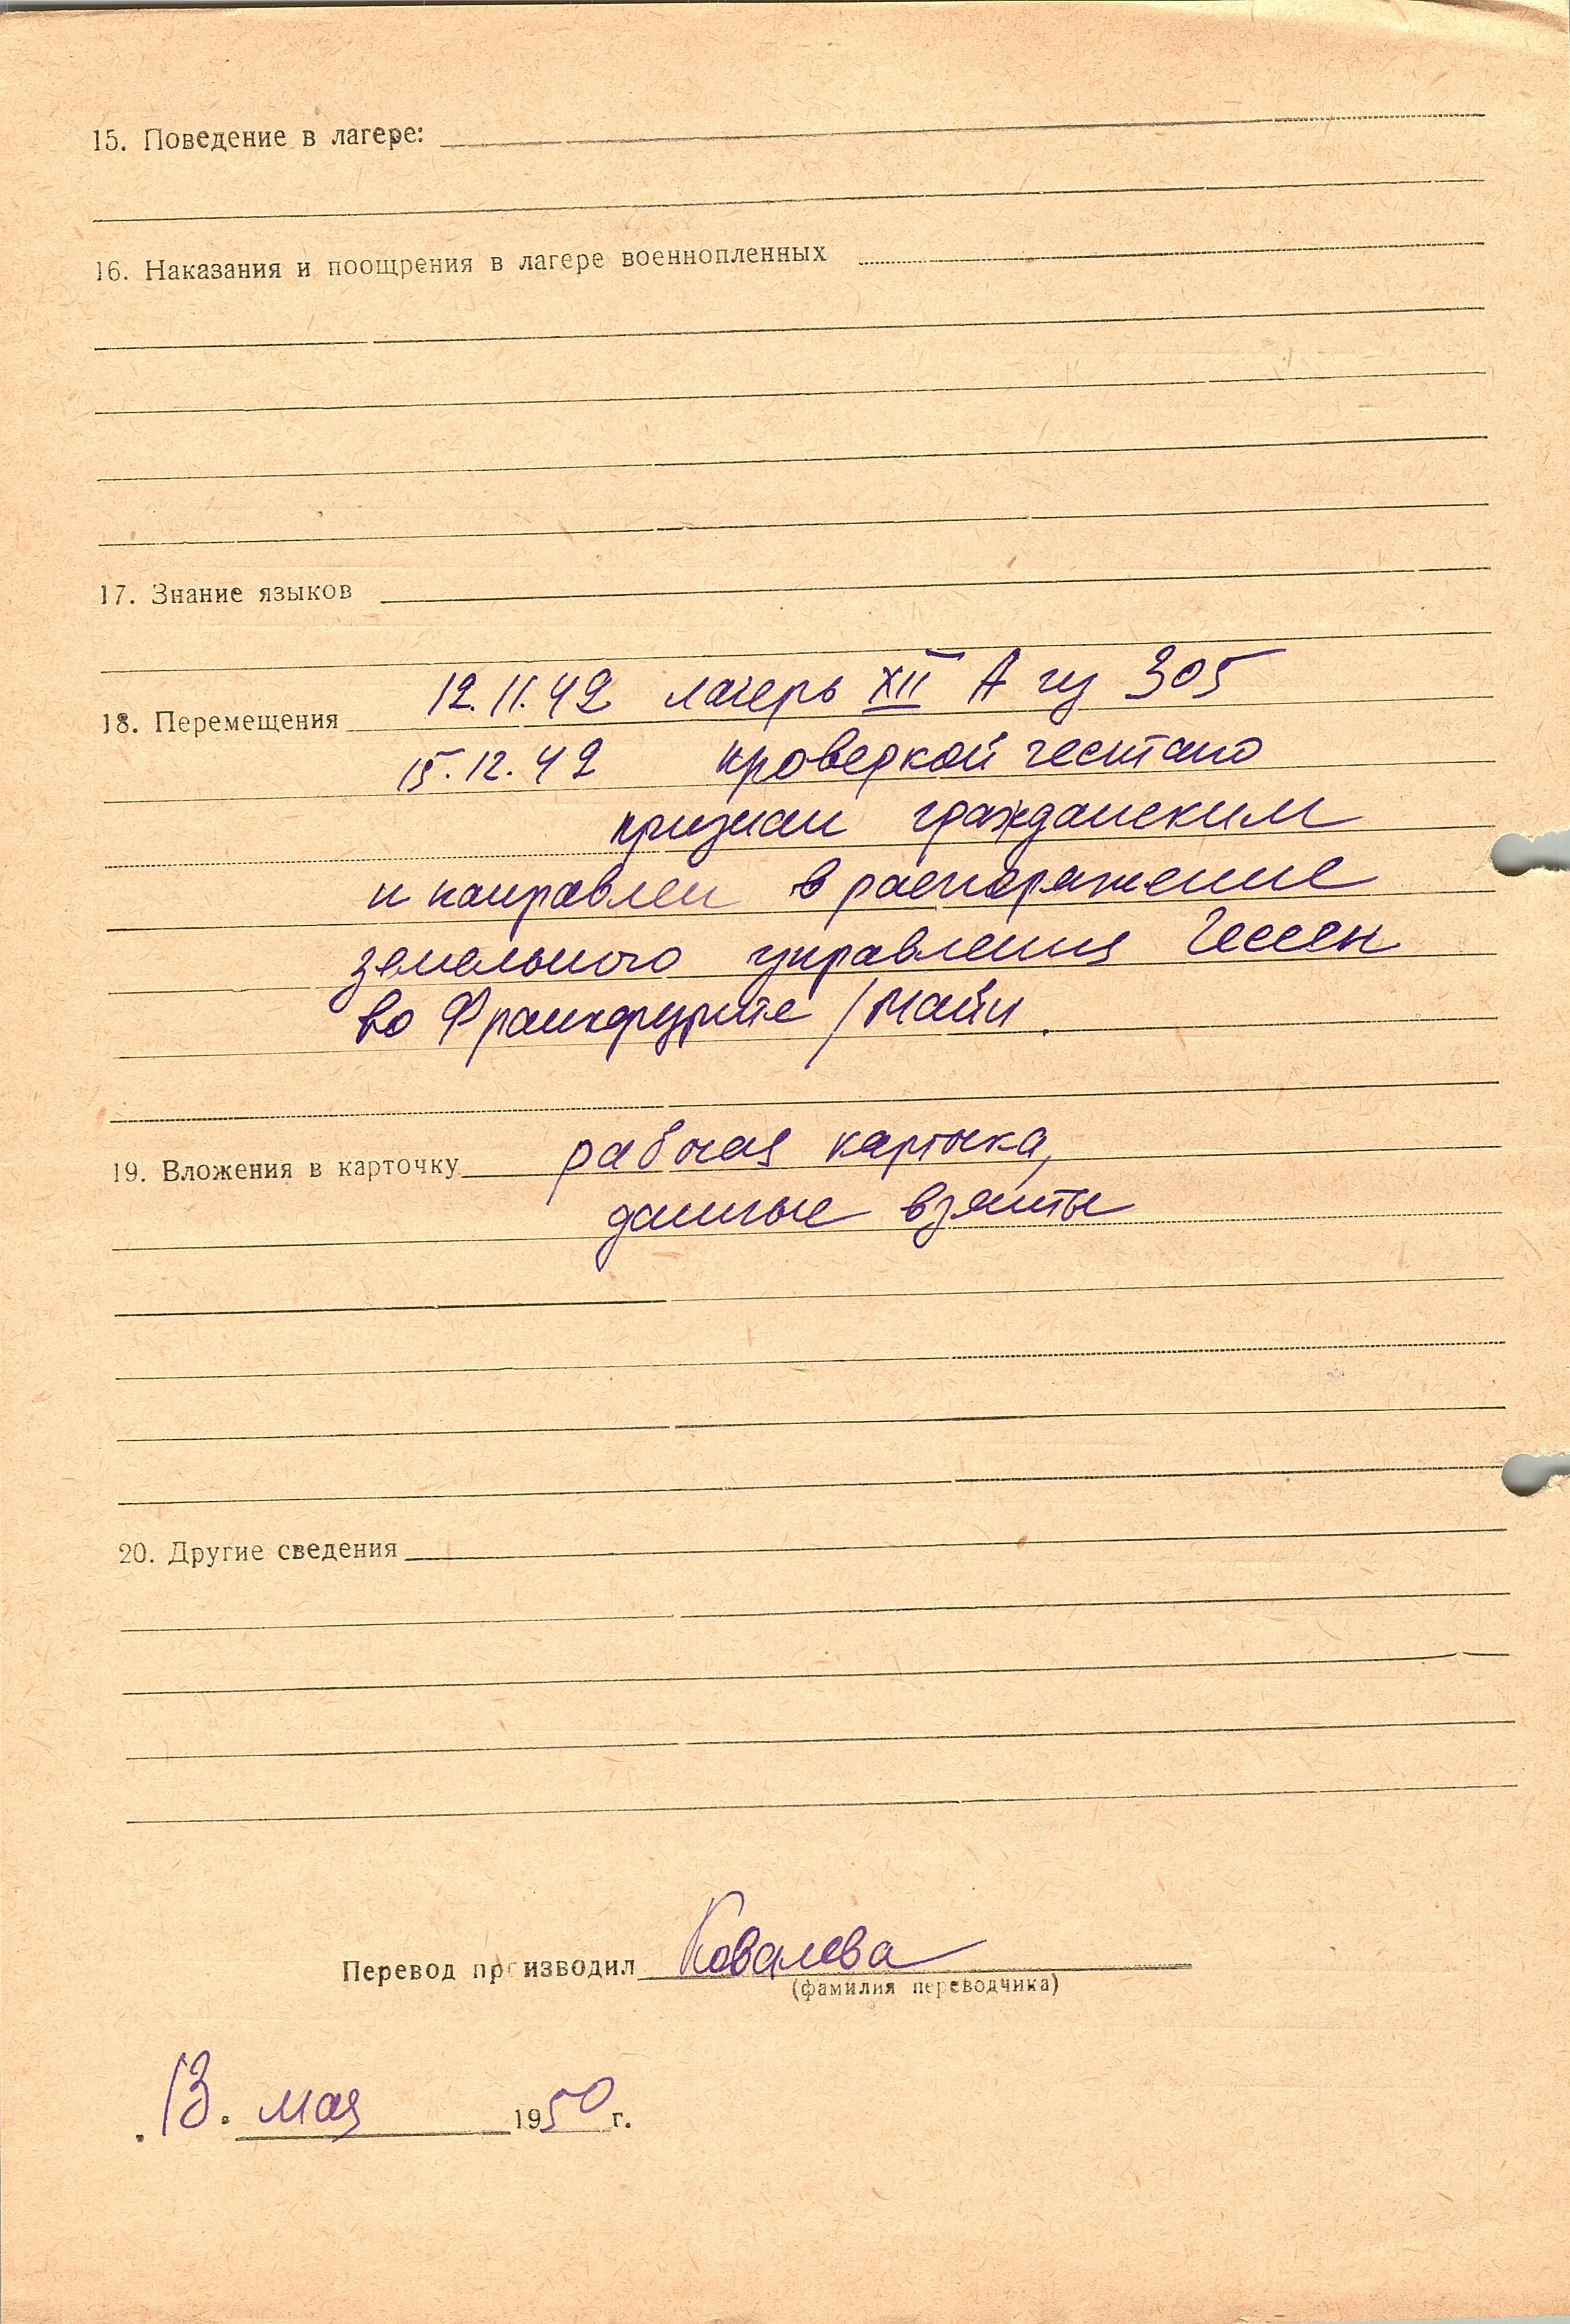 15. Поведение в лагере:
16. Наказания и поощрения в лагере военнопленных
17. Знание языков
12.11.42 лагерь XII А из 305
18. Перемещения
15.12.42 проверкой гестапо
признан гражданским
и направлен в распоряжение
земельного управления Гессен
во Франкфурте / Майн.
рабочая карточка,
19. Вложения в карточку
данные взяты
20. Другие сведения
Перевод производил Ковалева
(фамилия переводчика)
13. мая 1950 г.